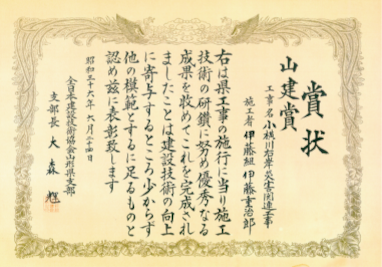 賞状
山建賞
工事名 小横川右岸災害関連工事
施工者 伊藤組 伊藤重治郎
右は県工事の施行に当り施工
技術の研鑽に努め優秀なる
成果を收めてこれを完成され
ましたことは建設技術の向上
に寄与するところ少からず
他の模範とするに足るものと
認め茲に表彰致します
昭和三十六年六月二十四日
全日本建設技術協会山形県支部
支部長 大森